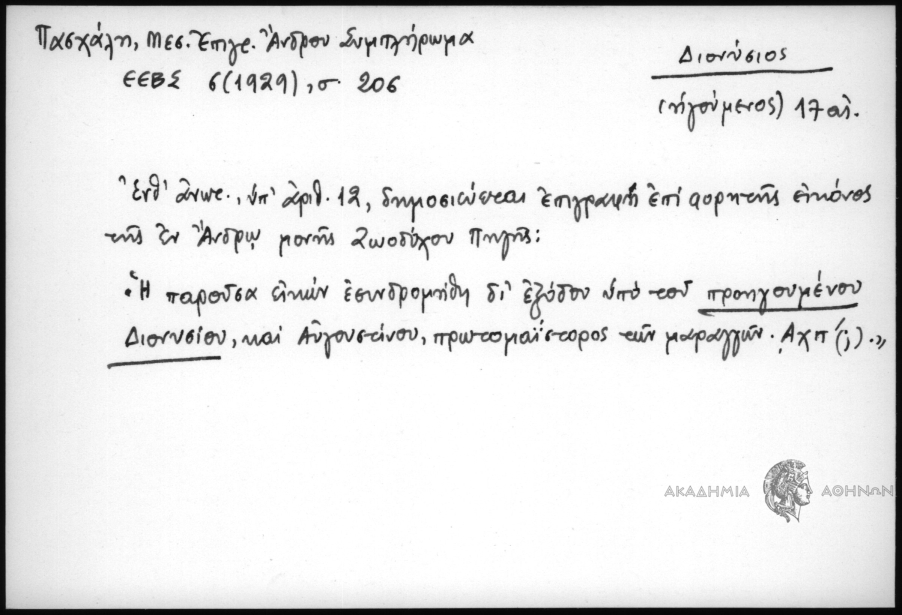 Πασχάλη, Μεσ. Ἐπιγρ. Ἄνδρου Συμπλήρωμα
ΕΕΒΣ 6(1929), σ. 206
Διονύσιος
(ἡγούμενος) 17 αἰ.
Ἐνθ' ἄνωτ., ὑπ' ἀριθ. 12, δημοσιεύεται ἐπιγραφὴ ἐπὶ φορητῆς εἰκόνος
τῆς ἐν Ἄνδρῳ μονῆς Ζωοδόχου Πηγῆς:
"Ἡ παροῦσα εἰκὼν ἐσυνδρομήθη δι' ἐξόδου ὑπὸ τοῦ προηγουμένου
Διονυσίου, καὶ Αὐγουστίνου, πρωτομαΐστορος τῶν μαραγγῶν. ͵Αχπ΄(;)."
ΑΚΑΔΗΜΙΑ ΑΘΗΝΩΝ